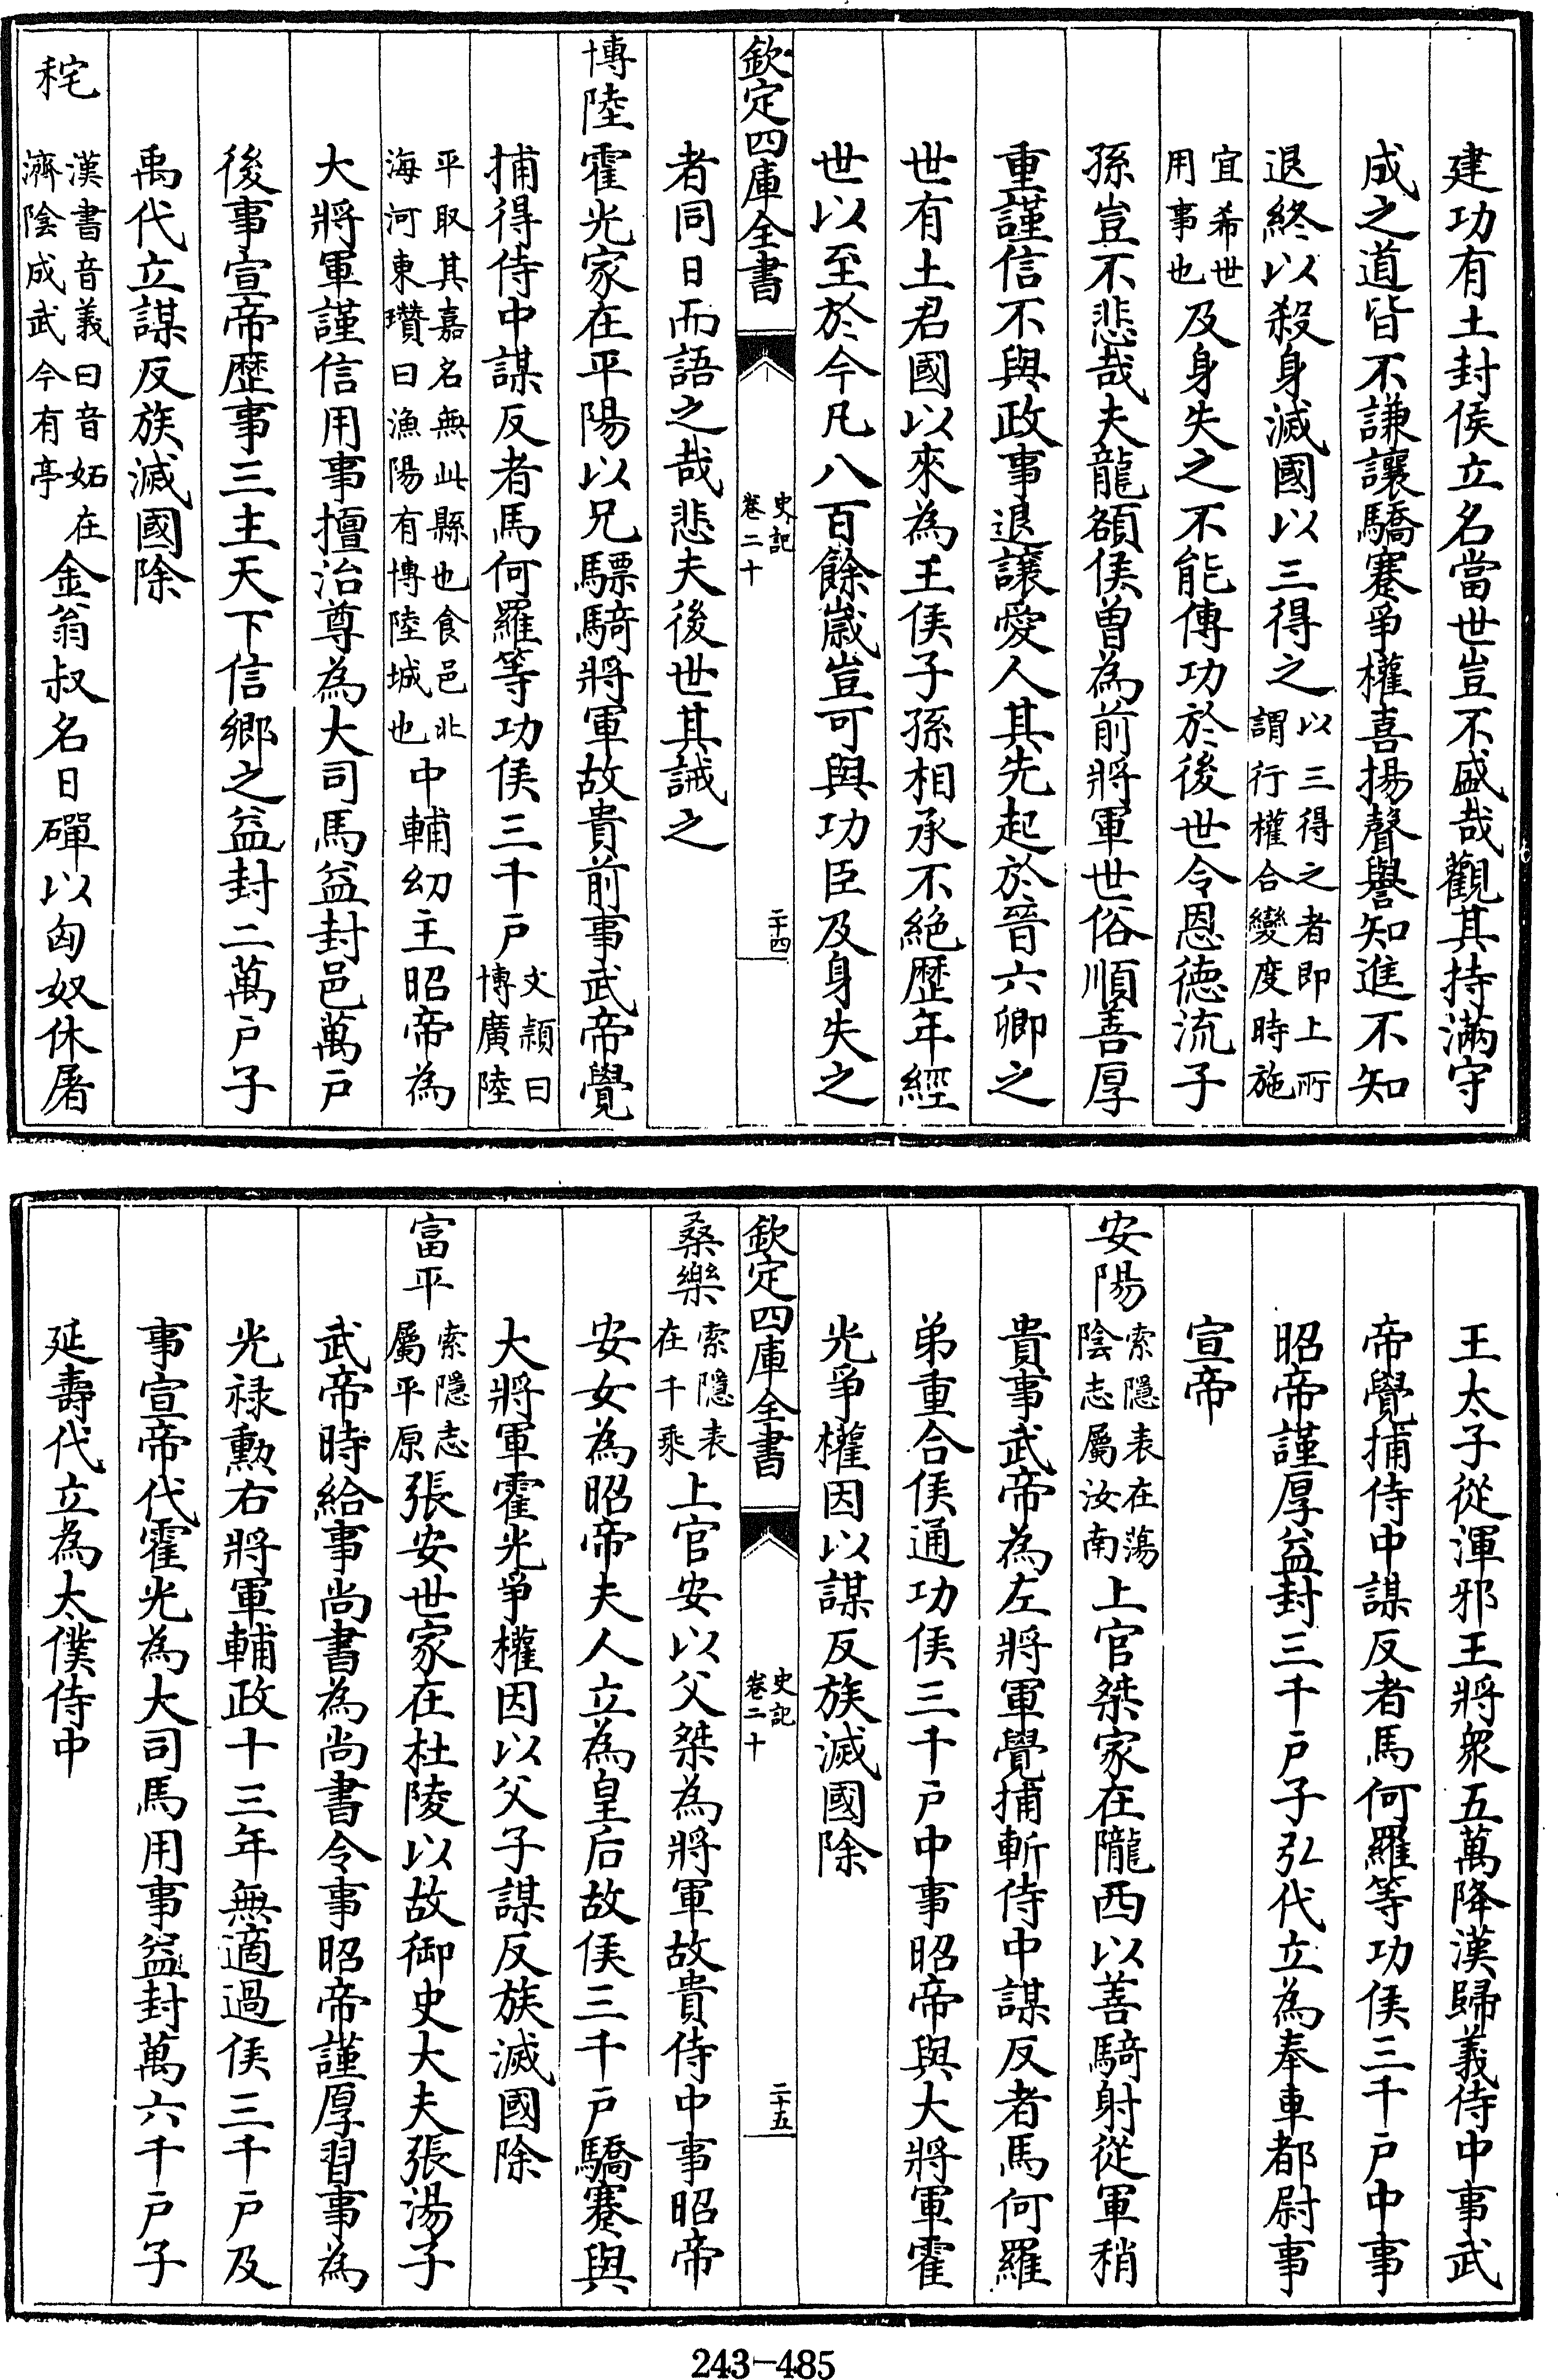 建功有土封侯立名當世豈不盛哉觀其持滿守
成之道皆不謙讓驕蹇爭權喜揚聲譽知進不知
退終以殺身滅國以三得之以三得之者即上所謂行權合變度時施
宜希世用事也及身失之不能傳功於後世令恩德流子
孫豈不悲哉夫龍頟侯曽為前將軍世俗順善厚
重謹信不與政事退讓愛人其先起於晉六卿之
世有土君國以來為王侯子孫相承不絕歴年經
世以至於今凡八百餘嵗豈可與功臣及身失之
欽定四庫全書 史記卷二十 二十四
者同日而語之哉悲夫後世其誡之
博陸霍光家在平陽以兄驃騎將軍故貴前事武帝覺
捕得侍中謀反者馬何羅等功侯三千户文頴曰博廣陸
平取其嘉名無此縣也食邑北海河東瓚曰漁陽有博陸城也中輔幼主昭帝為
大將軍謹信用事擅治尊為大司馬益封邑萬户
後事宣帝歴事三主天下信鄉之益封二萬户子
禹代立謀反族滅國除
秺漢書音義曰音妬在濟陰成武今有亭金翁叔名日磾以匈奴休屠
王太子從渾邪王將衆五萬降漢歸義侍中事武
帝覺捕侍中謀反者馬何羅等功侯三千户中事
昭帝謹厚益封三千户子弘代立為奉車都尉事
宣帝
安陽索隱表在蕩陰志屬汝南上官桀家在隴西以善騎射從軍稍
貴事武帝為左將軍覺捕斬侍中謀反者馬何羅
弟重合侯通功侯三千户中事昭帝與大將軍霍
光爭權因以謀反族滅國除
欽定四庫全書 史記卷二十 二十五
桑樂索隱表在千乘上官安以父桀為將軍故貴侍中事昭帝
安女為昭帝夫人立為皇后故侯三千户驕蹇與
大將軍霍光爭權因以父子謀反族滅國除
富平索隱志屬平原張安世家在杜陵以故御史大夫張湯子
武帝時給事尚書為尚書令事昭帝謹厚習事為
光祿勲右將軍輔政十三年無適過侯三千户及
事宣帝代霍光為大司馬用事益封萬六千户子
延壽代立為太僕侍中
243-485